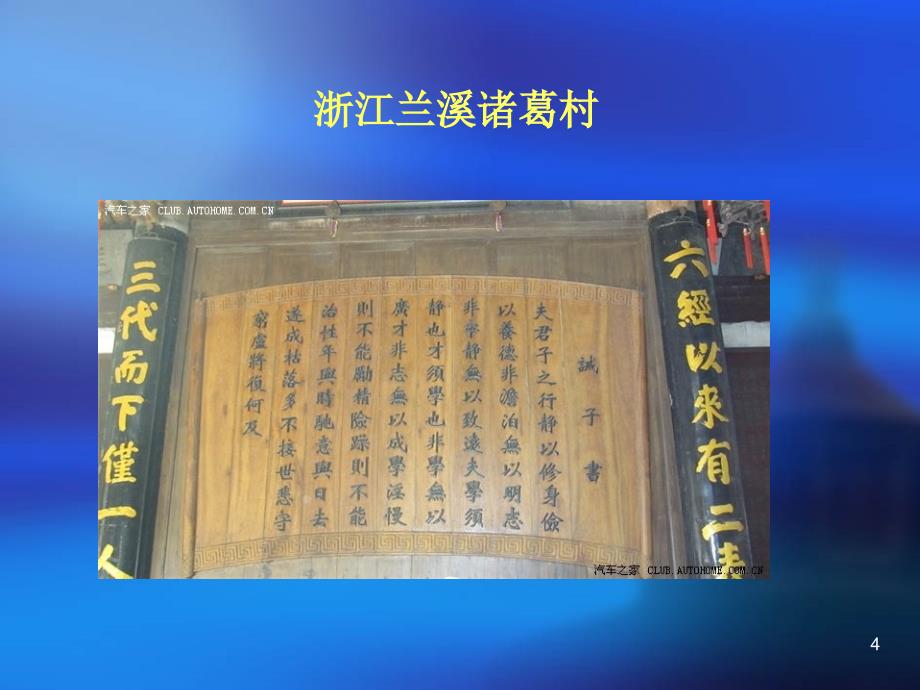 浙江兰溪诸葛村
汽车之家 CLUB.AUTOHOME.COM.CN
六經以來有二表
誡子書
夫君子之行静以修身儉
以養德非澹泊無以明志
非寧静無以致遠夫學須
静也才須學也非學無以
廣才非志無以成學淫慢
則不能勵精險躁則不能
治性年與時馳意與日去
遂成枯落多不接世悲守
窮廬將復何及
三代而下僅一人
汽车之家 CLUB.AUTOHOME.COM.CN
4